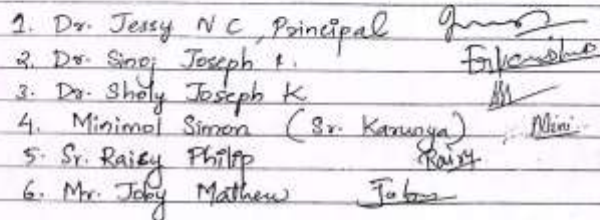 1. Dr. Jessy N C, Principal
2. Dr. Sinoj Joseph P.
3. Dr. Sholy Joseph K
4. Minimol Simon (Sr. Karunya) Mini
5. Sr. Raisy Philip Raisy
6. Mr. Joby Mathew Joby